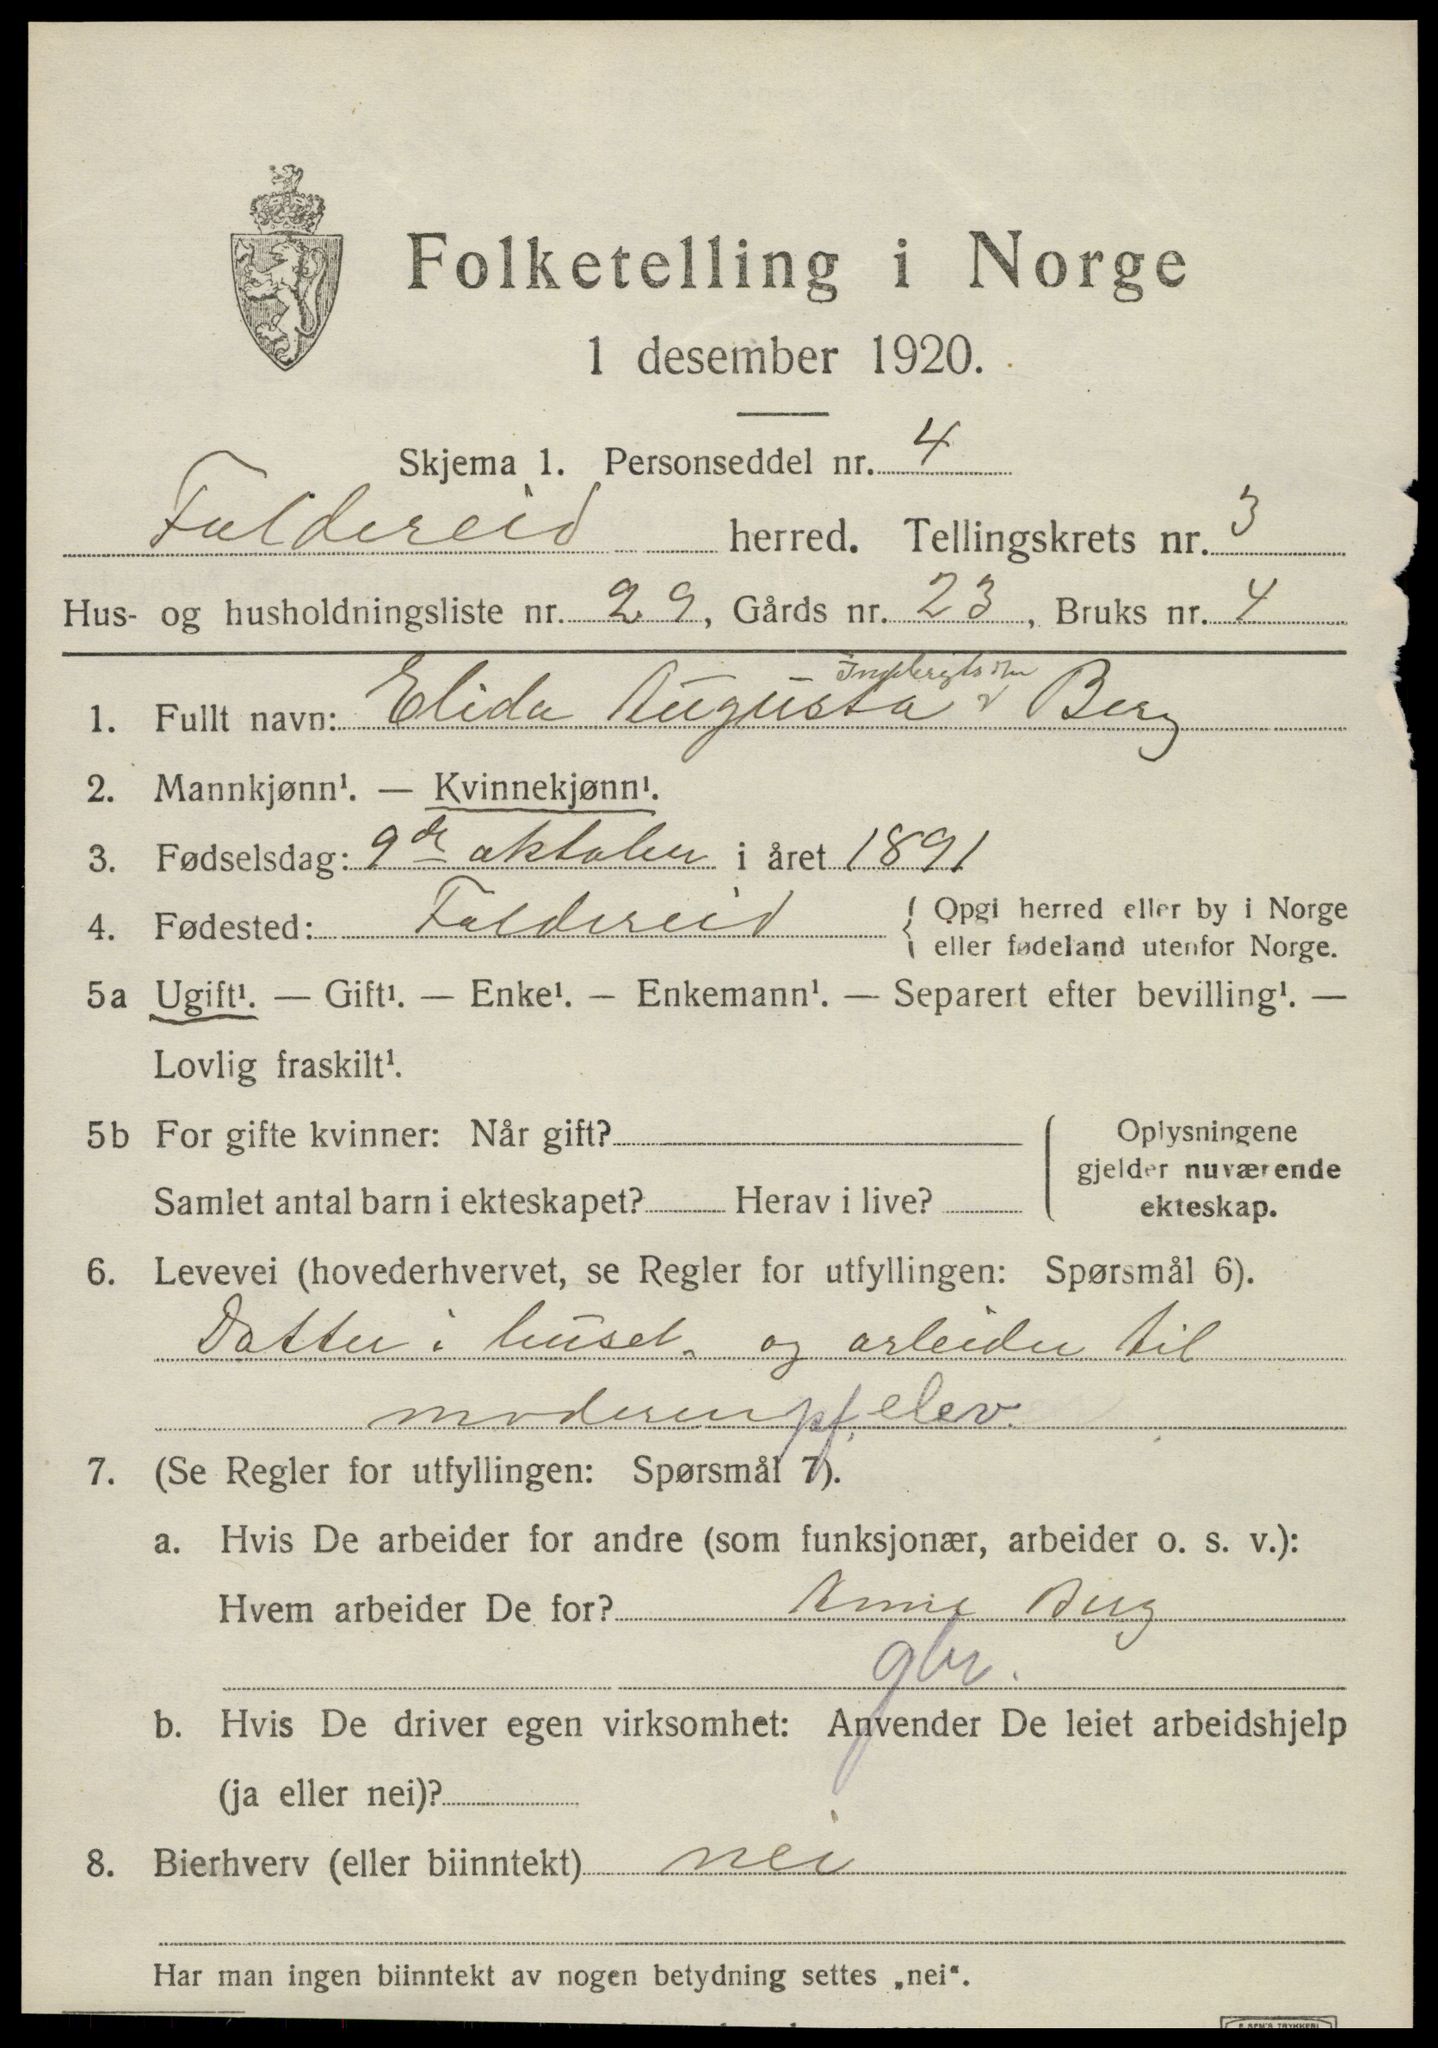 Folketelling i Norge
1 desember 1920.
Skjema 1. Personseddel nr. 4
Foldereid herred. Tellingskrets nr. 3
Hus- og husholdningsliste nr. 29, Gårds nr. 23, Bruks nr. 4
1. Fullt navn: Elida Augusta Berg
2. Mannkjønn¹. — Kvinnekjønn¹.
3. Fødselsdag: 9de oktober i året 1891
4. Fødested: Foldereid { Opgi herred eller by i Norge
eller fødeland utenfor Norge.
5a Ugift¹. — Gift¹. — Enke¹. — Enkemann¹. — Separert efter bevilling¹. —
Lovlig fraskilt¹.
5b For gifte kvinner: Når gift? ( Oplysningene
gjelder nuværende
Samlet antal barn i ekteskapet? Herav i live?
ekteskap.
6. Levevei (hovederhvervet, se Regler for utfyllingen: Spørsmål 6).
Datter i huset. og arbeider til
moderen pf. elev.
7. (Se Regler for utfyllingen: Spørsmål 7).
a. Hvis De arbeider for andre (som funksjonær, arbeider o. s. v.):
Hvem arbeider De for? Anne Berg
gbr.
b. Hvis De driver egen virksomhet: Anvender De leiet arbeidshjelp
(ja eller nei)?
8. Bierhverv (eller biinntekt) nei
Har man ingen biinntekt av nogen betydning settes „nei“.